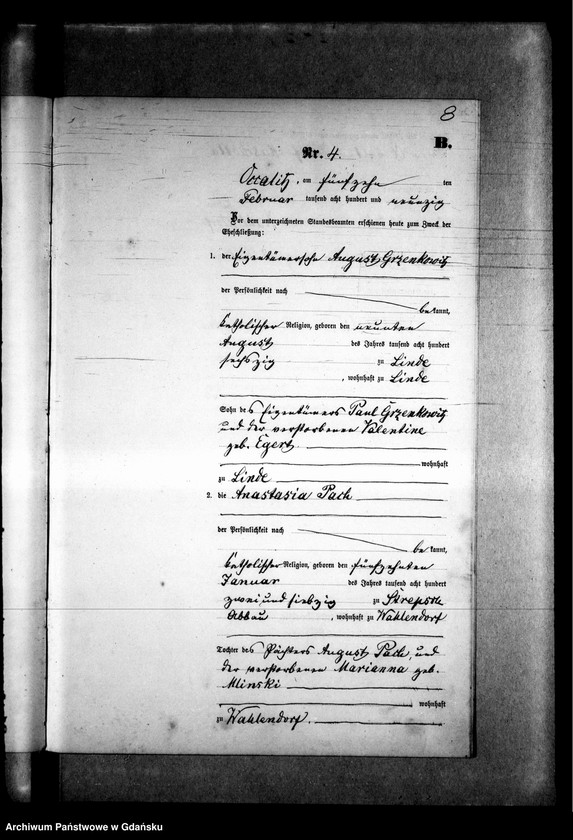 8
B.
Nr. 4.
Occalitz, am fünfzehn ten
Februar tausend acht hundert und neunzig
Vor dem unterzeichneten Standesbeamten erschienen heute zum Zweck der
Eheschließung:
1. der Eigentümersohn August Grzenkowitz
der Persönlichkeit nach
be kannt,
katholischer Religion, geboren den neunten
August des Jahres tausend acht hundert
sechszig zu Linde
, wohnhaft zu Linde
Sohn des Eigentümers Paul Grzenkowitz
und der verstorbenen Valentine
geb. Egert
wohnhaft
zu Linde
2. die Anastasia Pach
der Persönlichkeit nach
be kannt,
katholischer Religion, geboren den fünfzehnten
Januar des Jahres tausend acht hundert
zwei und siebzig zu
Abbau , wohnhaft zu Wahlendorf
Tochter des Pächters August Pach, und
der verstorbenen Marianna geb.
Mlinski
wohnhaft
zu Wahlendorf.
Archiwum Państwowe w Gdańsku